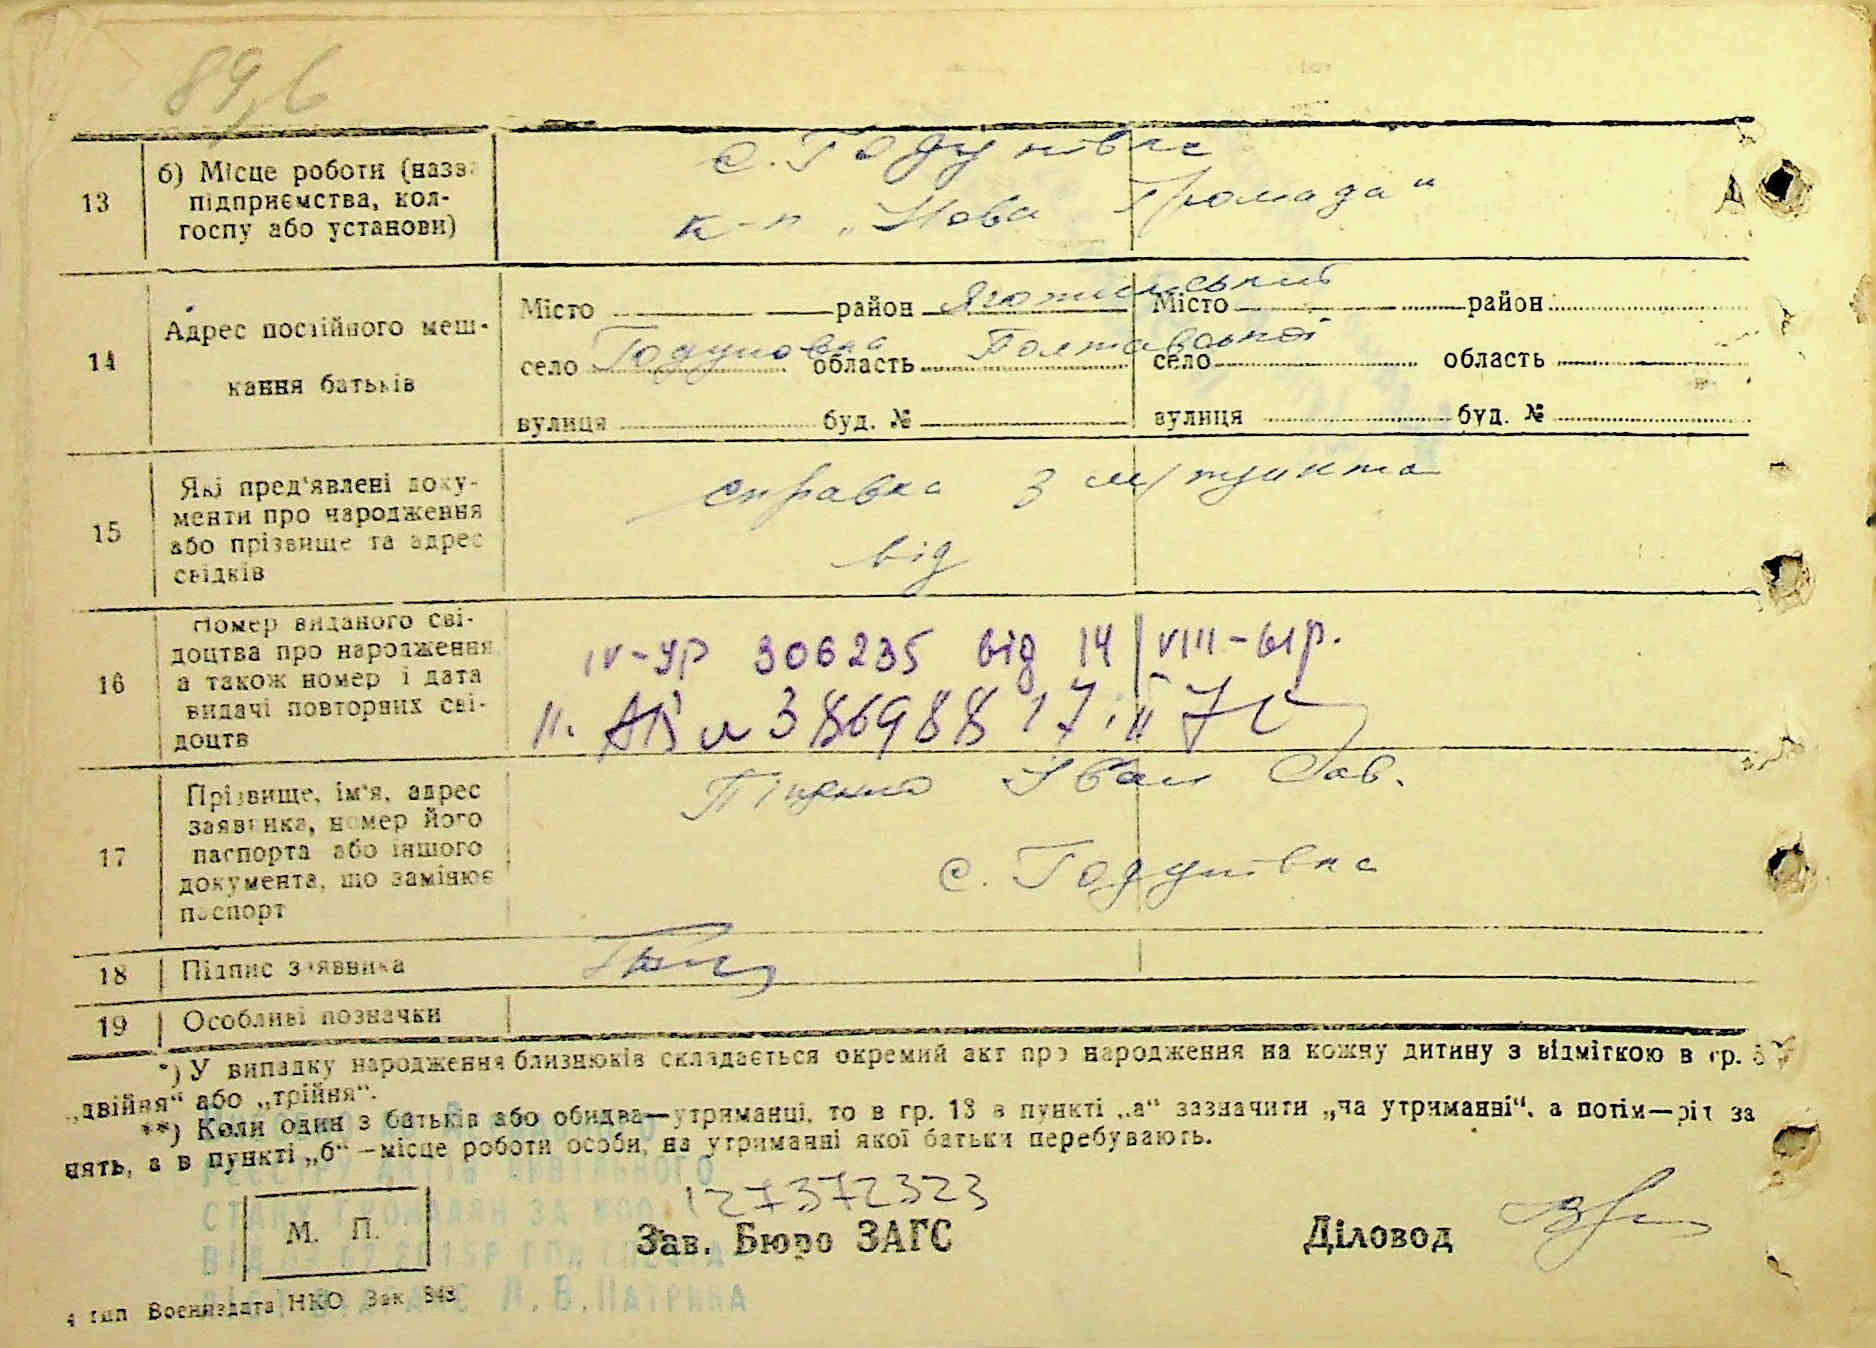 89,6
13
б) Місце роботи (назва
підприємства, кол-
госпу або установи)
с. Годунівка
к-п „Нова Громада"
14
Адрес постійного меш-
кання батьків
Місто район Яготинський Місто район
село Годуновка область Полтавської село область
вулиця буд. № вулиця буд. №
15
Які пред'явлені доку-
менти про народження
або прізвище та адрес
свідків
справка з м/пункта
від
16
Номер виданого сві-
доцтва про народження
а також номер і дата
видачі повторних сві-
доцтв
IV-УР 306235 від 14/VIII-61р.
II. АБ № 386988 17.II
17
Прізвище, ім'я, адрес
заявника, номер його
паспорта або іншого
документа, що замінює
паспорт
Іван Сав.
с. Годунівка
18 Підпис заявника
19 Особливі позначки
*) У випадку народження близнюків складається окремий акт про народження на кожну дитину з відміткою в гр. 5
„двійня" або „трійня".
**) Коли один з батьків або обидва—утриманці, то в гр. 13 в пункті „а" зазначити „на утриманні", а потім—рід за
нять, а в пункті „б"—місце роботи особи, на утриманні якої батьки перебувають.
РЕЄСТРУ АКТІВ ЦИВІЛЬНОГО
СТАНУ ГРОМАДЯН ЗА
Л.В.ПАТРИКА
127372323
М. П.
Зав. Бюро ЗАГС
Діловод
4 тип Воениздата НКО Зак 843